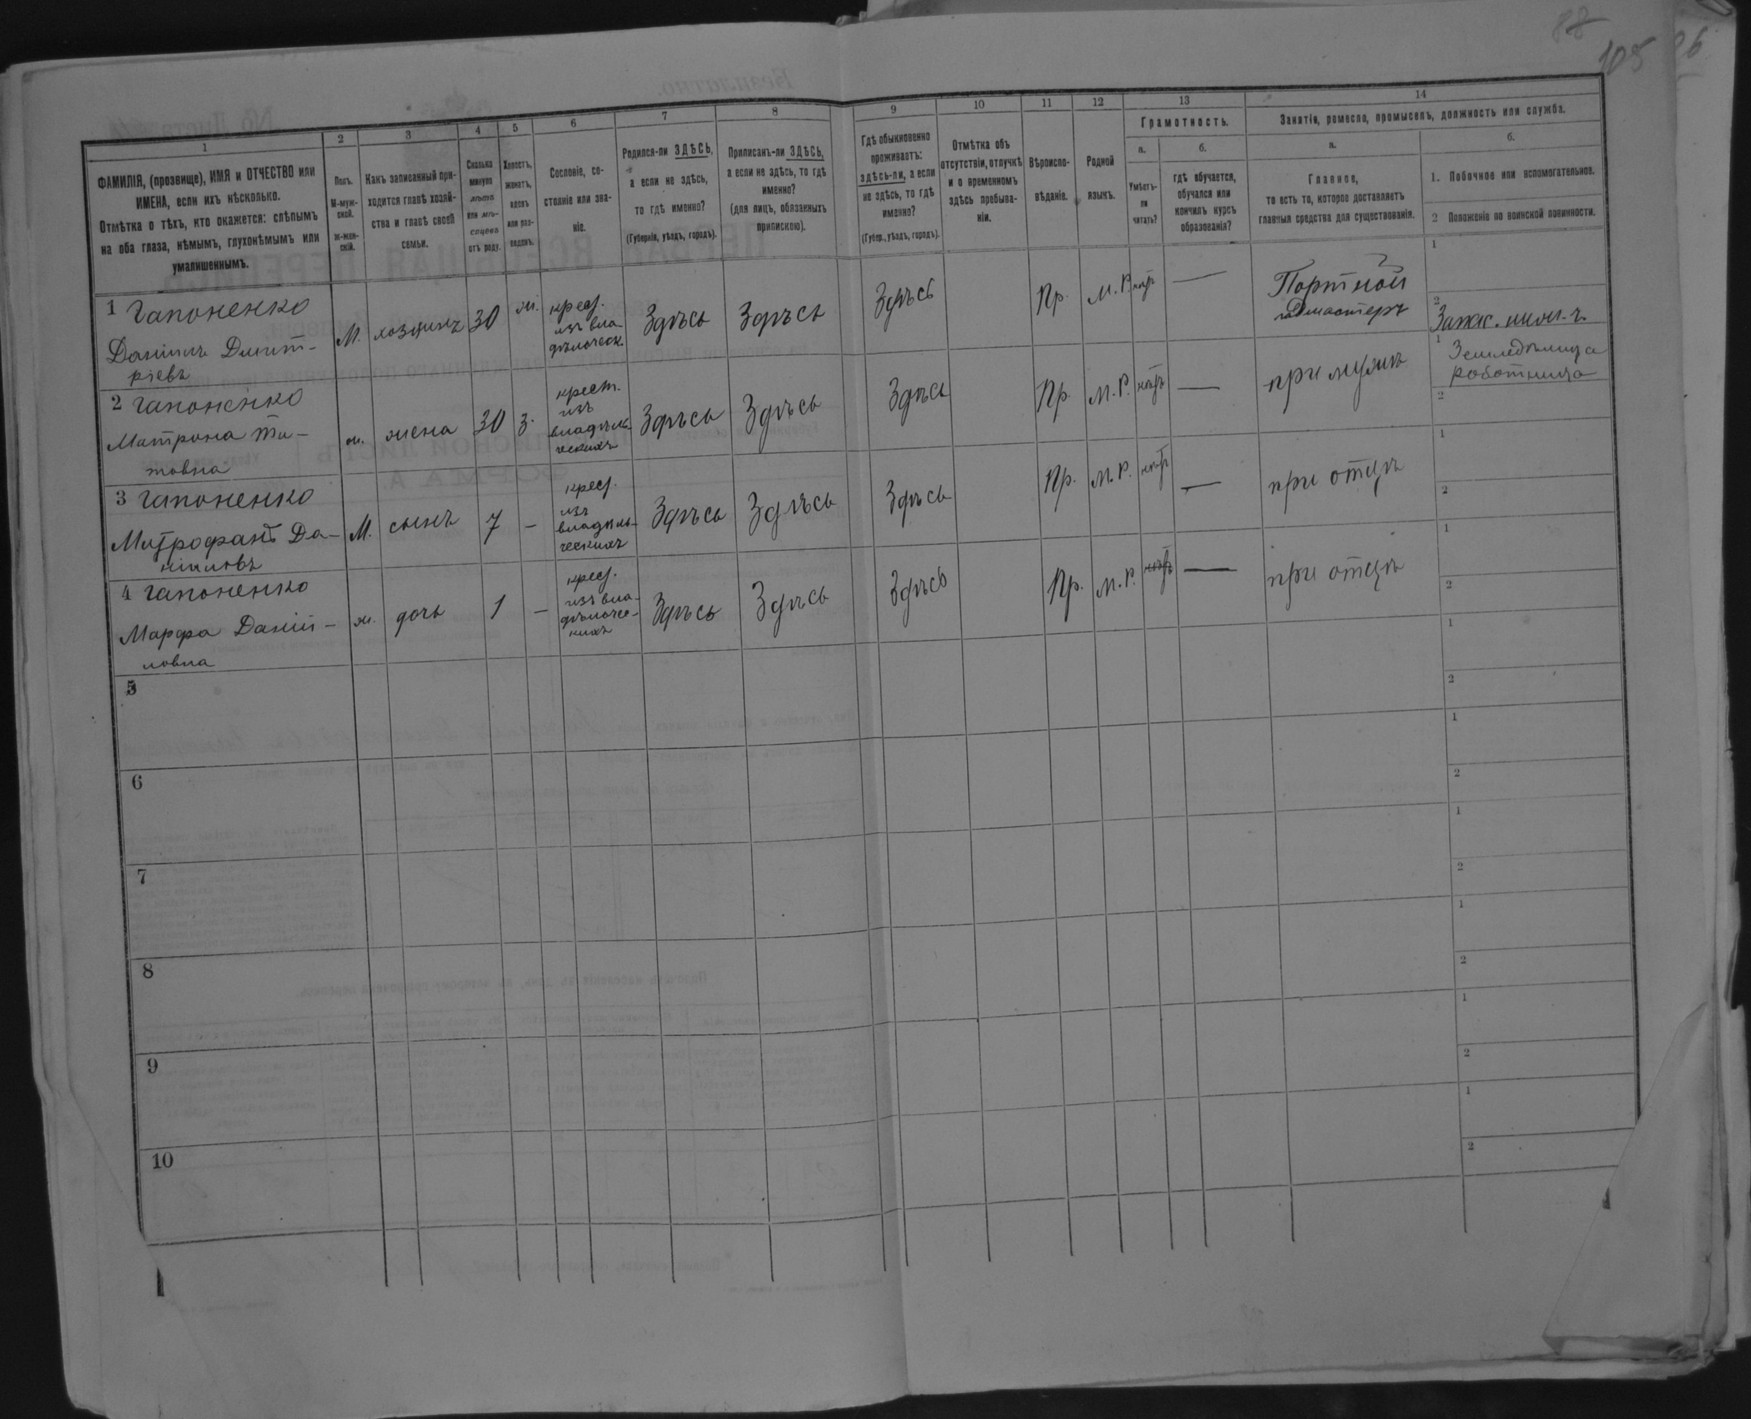 88
105 26
1
ФАМИЛІЯ, (прозвище), ИМЯ и ОТЧЕСТВО или
ИМЕНА, если ихъ нѣсколько.
Отмѣтка о тѣхъ, кто окажется: слѣпымъ
на оба глаза, нѣмымъ, глухонѣмымъ или
умалишеннымъ.
2
Полъ.
М-муж-
ской.
Ж-жен-
скій.
3
Какъ записанный при-
ходится главѣ хозяй-
ства и главѣ своей
семьи.
4
Сколько
минуло
лѣтъ
или мѣ-
сяцевъ
отъ роду.
5
Холостъ,
женатъ,
вдовъ
или раз-
веденъ.
6
Сословіе, со-
стояніе или зва-
ніе.
7
Родился-ли ЗДѢСЬ,
а если не здѣсь,
то гдѣ именно?
(Губернія, уѣздъ, городъ).
8
Приписанъ-ли ЗДѢСЬ,
а если не здѣсь, то гдѣ
именно?
(для лицъ, обязанныхъ
припискою).
9
Гдѣ обыкновенно
проживаетъ:
здѣсь-ли, а если
не здѣсь, то гдѣ
именно?
(Губер., уѣздъ, городъ).
10
Отмѣтка объ
отсутствіи, отлучкѣ
и о временномъ
здѣсь пребыва-
ніи.
11
Вѣроиспо-
вѣданіе.
12
Родной
языкъ.
13
Грамотность.
а.
Умѣетъ-
ли
читать?
б.
гдѣ обучается,
обучался или
кончилъ курсъ
образованія?
14
Занятіе, ремесло, промыселъ, должность или служба.
а.
Главное,
то есть то, которое доставляетъ
главныя средства для существованія.
б.
1. Побочное или вспомогательное.
2 Положеніе по воинской повинности.
1 Гапоненко
Даніилъ Дмит-
ріевъ
М. хозяинъ 30 ж.
крес.
изъ вла
дѣльческ.
Здѣсь Здѣсь Здѣсь Пр. М.Р. нѣтъ —
Портной
1
2
2 Гапоненко
Матрона Ти-
товна
ж. жена 30 З.
крест.
изъ
владѣль
ческихъ
Здѣсь Здѣсь Здѣсь Пр. М.Р. нѣтъ — при мужѣ
1 Земледѣлица
работница
2
3 Гапоненко
Митрофанъ Да-
ниловъ
М. сынъ 7 —
крес.
изъ
владѣль-
ческихъ
Здѣсь Здѣсь Здѣсь Пр. М.Р. нѣтъ — при отцѣ
1
2
4 Гапоненко
Марфа Даній-
ловна
ж. дочь 1 —
крес.
изъ вла-
дѣльче-
скихъ
Здѣсь Здѣсь Здѣсь Пр. М.Р. нѣтъ — при отцѣ
1
2
5
1
2
6
1
2
7
1
2
8
1
2
9
1
2
10
1
2